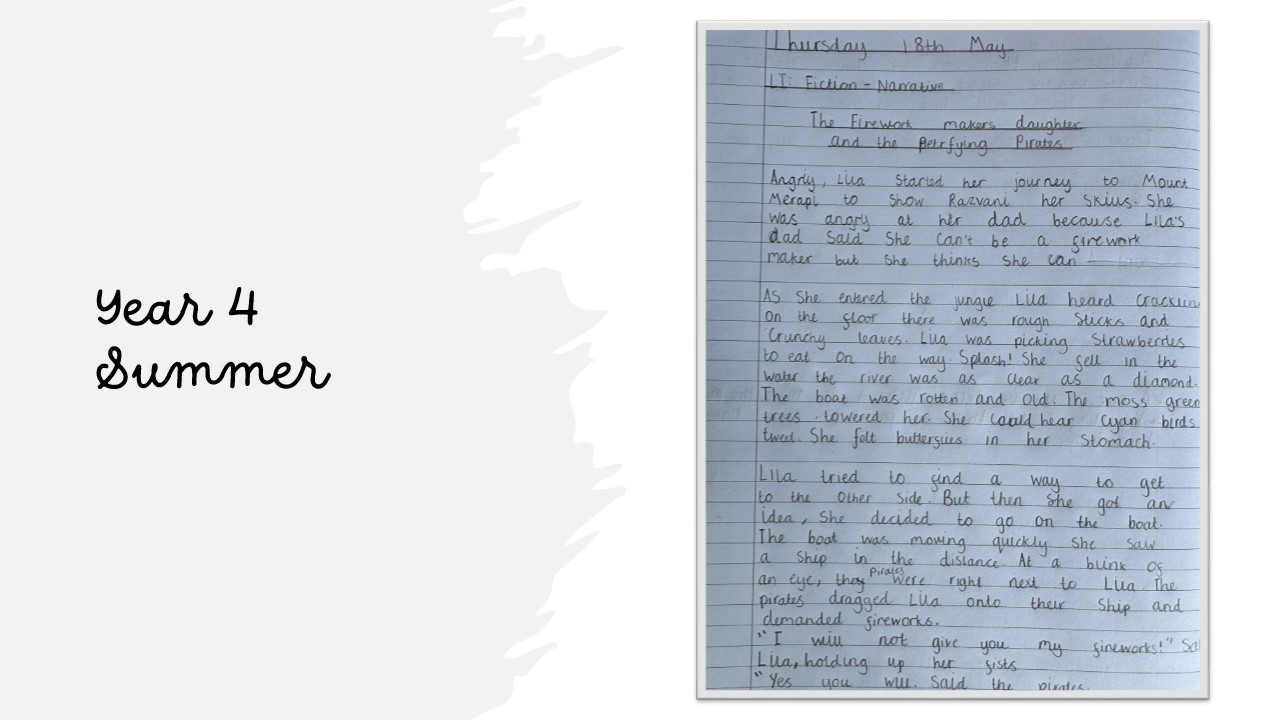 Year 4
Summer
Thursday 18th May
LI: Fiction - Narrative
The Firework makers daughter
and the Petrfying Pirates
Angrily, Lila started her journey to Mount
Merapi to show Razvani her skills. She
was angry at her dad because Lila's
dad said she can't be a firework
maker but she thinks she can
As she entered the jungle Lila heard
on the floor there was rough sticks and
crunchy leaves. Lila was picking strawberries
to eat on the way. Splash! She fell in the
water the river was as clear as a diamond.
The boat was rotten and old. The moss green
trees towered her. She could hear cyan birds
tweet. She felt butterflies in her stomach.
Lila tried to find a way to get
to the other side. But then she got an
idea, she decided to go on the boat.
The boat was moving quickly she saw
a ship in the distance. At a blink of
an eye, they pirates were right next to Lila. The
pirates dragged Lila onto their ship and
demanded fireworks.
"I will not give you my fireworks!" Sa
Lila, holding up her fists
"Yes you will. Said the pirates.